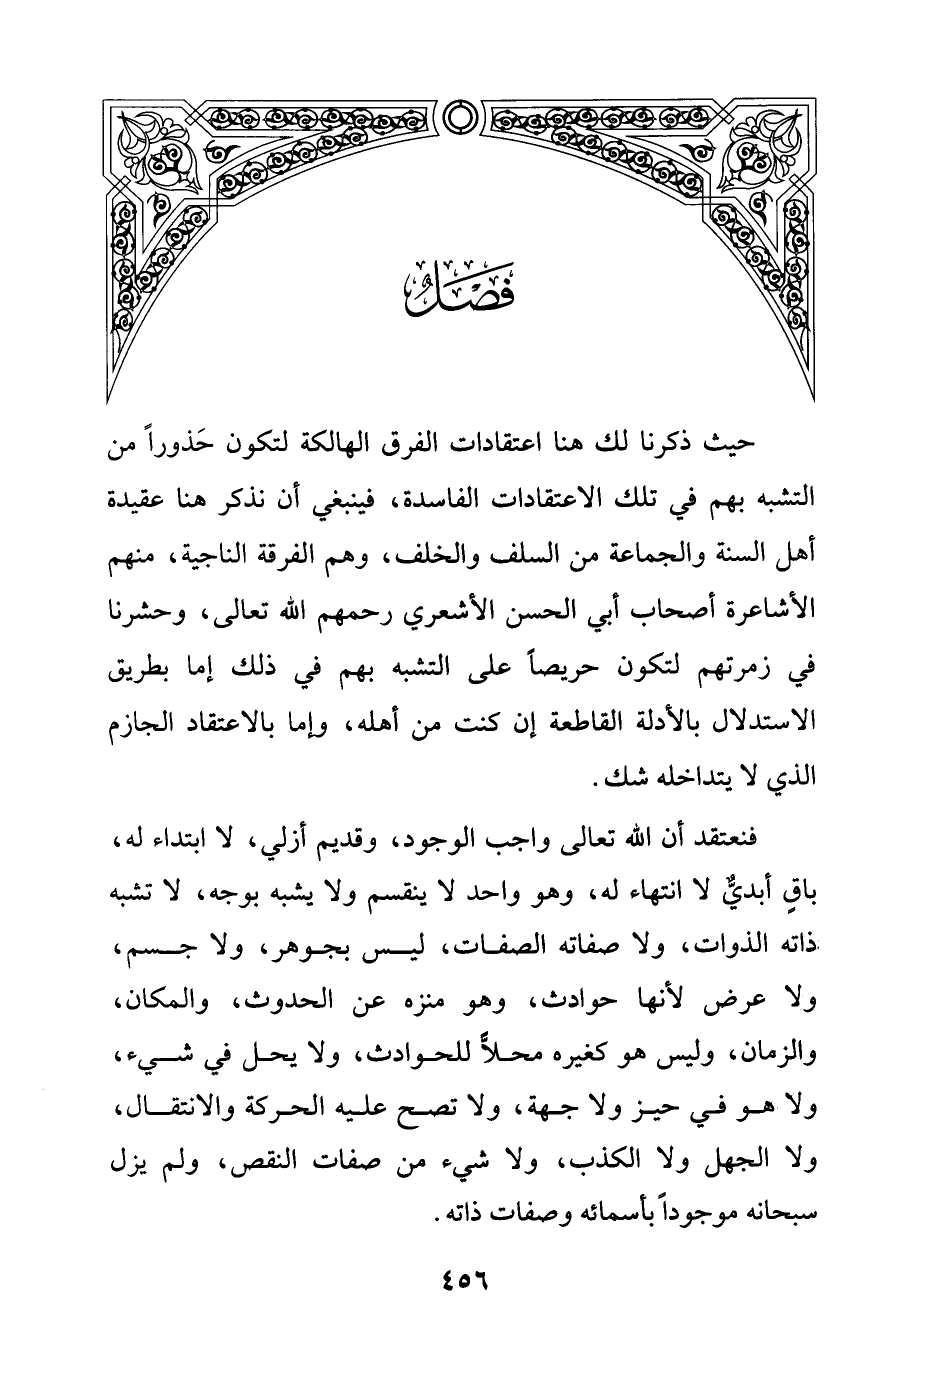 فَصْلٌ
حيث ذكرنا لك هنا اعتقادات الفرق الهالكة لتكون حَذوراً من
التشبه بهم في تلك الاعتقادات الفاسدة، فينبغي أن نذكر هنا عقيدة
أهل السنة والجماعة من السلف والخلف، وهم الفرقة الناجية، منهم
الأشاعرة أصحاب أبي الحسن الأشعري رحمهم الله تعالى، وحشرنا
في زمرتهم لتكون حريصاً على التشبه بهم في ذلك إما بطريق
الاستدلال بالأدلة القاطعة إن كنت من أهله، وإما بالاعتقاد الجازم
الذي لا يتداخله شك.
فنعتقد أن الله تعالى واجب الوجود، وقديم أزلي، لا ابتداء له،
باقٍ أبديٌّ لا انتهاء له، وهو واحد لا ينقسم ولا يشبه بوجه، لا تشبه
ذاته الذوات، ولا صفاته الصفات، ليس بجوهر، ولا جسم،
ولا عرض لأنها حوادث، وهو منزه عن الحدوث، والمكان،
والزمان، وليس هو كغيره محلاًّ للحوادث، ولا يحل في شيء،
ولا هو في حيز ولا جهة، ولا تصح عليه الحركة والانتقال،
ولا الجهل ولا الكذب، ولا شيء من صفات النقص، ولم يزل
سبحانه موجوداً بأسمائه وصفات ذاته.
٤٥٦